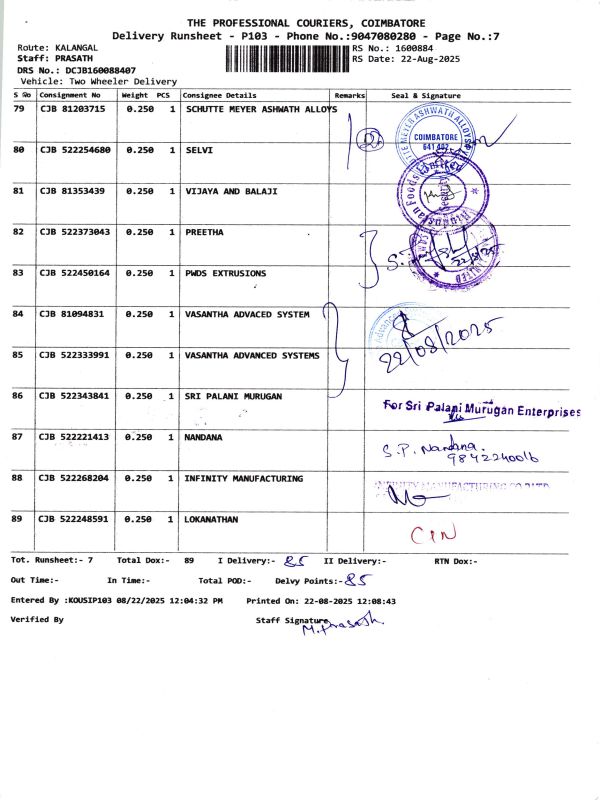 THE PROFESSIONAL COURIERS, COIMBATORE
Delivery Runsheet - P103 - Phone No.:9047080280 - Page No.:7
Route: KALANGAL RS No.: 1600884
Staff: PRASATH RS Date: 22-Aug-2025
DRS No.: DCJB160088407
Vehicle: Two Wheeler Delivery
S No Consignment No Weight PCS Consignee Details Remarks Seal & Signature
79 CJB 81203715 0.250 1 SCHUTTE MEYER ASHWATH ALLOYS
COIMBATORE
641 402
80 CJB 522254680 0.250 1 SELVI
81 CJB 81353439 0.250 1 VIJAYA AND BALAJI
82 CJB 522373043 0.250 1 PREETHA
83 CJB 522450164 0.250 1 PWDS EXTRUSIONS
84 CJB 81094831 0.250 1 VASANTHA ADVACED SYSTEM
22/08/2025
85 CJB 522333991 0.250 1 VASANTHA ADVANCED SYSTEMS
86 CJB 522343841 0.250 1 SRI PALANI MURUGAN
For Sri Palani Murugan Enterprises
87 CJB 522221413 0.250 1 NANDANA S.P. Nandana.
9842240016
88 CJB 522268204 0.250 1 INFINITY MANUFACTURING
INFINITY MANUFACTURING CO LTD
89 CJB 522248591 0.250 1 LOKANATHAN CIN
Tot. Runsheet:- 7 Total Dox:- 89 I Delivery:- 85 II Delivery:- RTN Dox:-
Out Time:- In Time:- Total POD:- Delvy Points:- 85
Entered By :KOUSIP103 08/22/2025 12:04:32 PM Printed On: 22-08-2025 12:08:43
Verified By Staff Signature
M. Prasath